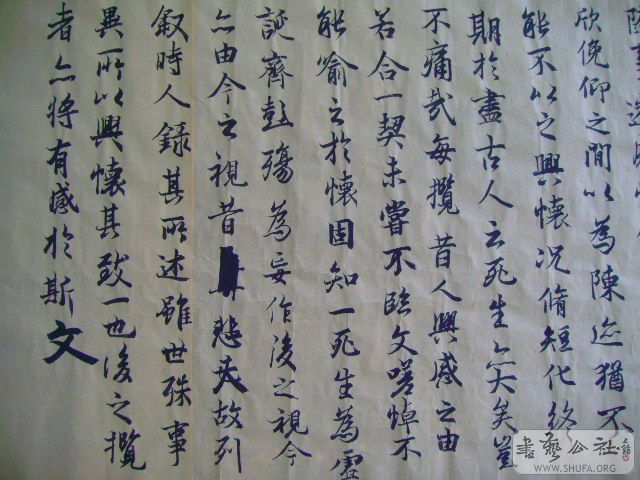 欣俛仰之間以為陳迹猶不
能不以之興懷況脩短化終
期於盡古人云死生亦大矣豈
不痛哉每攬昔人興感之由
若合一契未嘗不臨文嗟悼不
能喻之於懷固知一死生為虛
誕齊彭殤為妄作後之視今
亦由今之視昔悲夫故列
叙時人録其所述雖世殊事
異所以興懷其致一也後之攬
者亦將有感於斯文
書藝公社
WWW.SHUFA.ORG